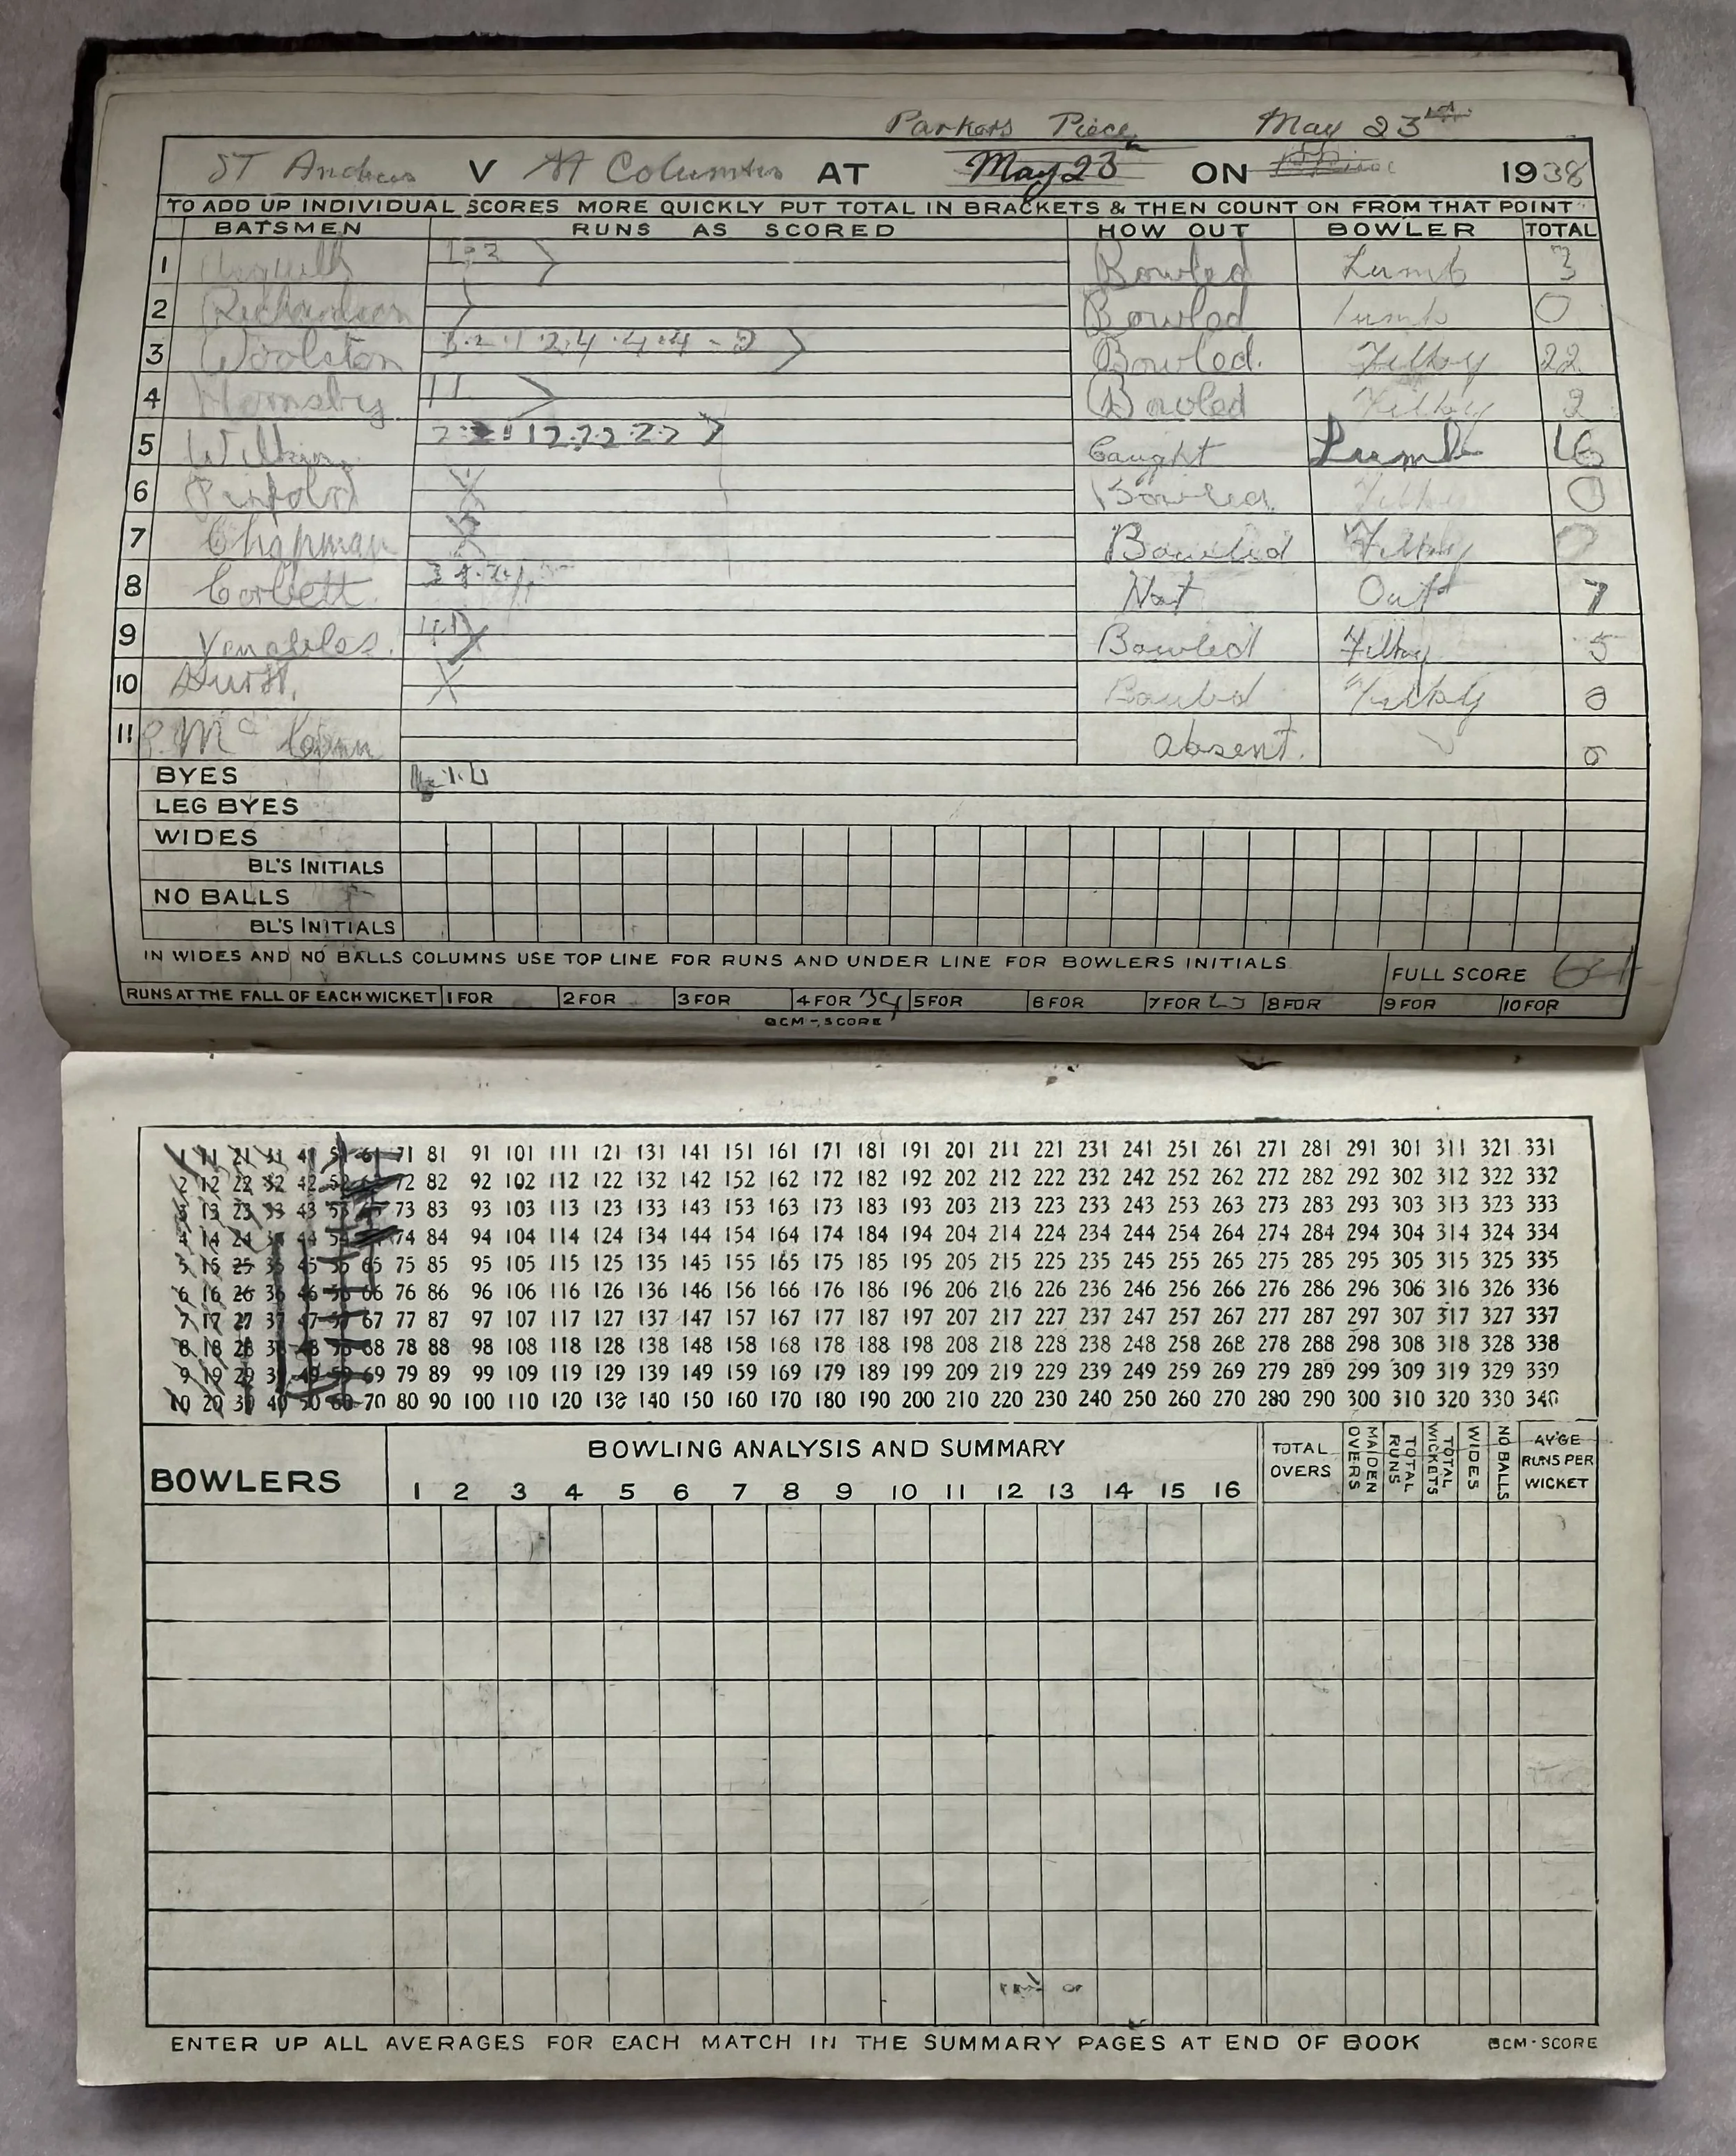 Parkers Piece May 23
ST Andrews V St Columbas AT May 23 ON 1938
TO ADD UP INDIVIDUAL SCORES MORE QUICKLY PUT TOTAL IN BRACKETS & THEN COUNT ON FROM THAT POINT
BATSMEN RUNS AS SCORED HOW OUT BOWLER TOTAL
1 Bowled Lumb 3
2 Richardson Bowled Lumb 0
3 Woolston Bowled. Filby 22
4 Hornsby 1 1 Bowled Filby 2
5 Wilkins Caught Lumb 16
6 Pinfold X Bowled Filby 0
7 Chapman Bowled Filby 0
8 Corbett Not Out 7
9 Venables. Bowled Filby 5
10 Hurst. X Bowled Filby 0
11 absent. 0
BYES
LEG BYES
WIDES
BL'S INITIALS
NO BALLS
BL'S INITIALS
IN WIDES AND NO BALLS COLUMNS USE TOP LINE FOR RUNS AND UNDER LINE FOR BOWLERS INITIALS FULL SCORE
RUNS AT THE FALL OF EACH WICKET 1 FOR 2 FOR 3 FOR 4 FOR 5 FOR 6 FOR 7 FOR 8 FOR 9 FOR 10 FOR
BCM-SCORE
1 11 21 31 41 51 61 71 81 91 101 111 121 131 141 151 161 171 181 191 201 211 221 231 241 251 261 271 281 291 301 311 321 331
2 12 22 32 42 52 72 82 92 102 112 122 132 142 152 162 172 182 192 202 212 222 232 242 252 262 272 282 292 302 312 322 332
13 23 33 43 53 73 83 93 103 113 123 133 143 153 163 173 183 193 203 213 223 233 243 253 263 273 283 293 303 313 323 333
4 14 24 44 54 74 84 94 104 114 124 134 144 154 164 174 184 194 204 214 224 234 244 254 264 274 284 294 304 314 324 334
5 15 25 35 45 55 65 75 85 95 105 115 125 135 145 155 165 175 185 195 205 215 225 235 245 255 265 275 285 295 305 315 325 335
6 16 26 36 46 56 66 76 86 96 106 116 126 136 146 156 166 176 186 196 206 216 226 236 246 256 266 276 286 296 306 316 326 336
7 17 27 37 47 57 67 77 87 97 107 117 127 137 147 157 167 177 187 197 207 217 227 237 247 257 267 277 287 297 307 317 327 337
8 18 28 38 48 58 68 78 88 98 108 118 128 138 148 158 168 178 188 198 208 218 228 238 248 258 268 278 288 298 308 318 328 338
9 19 29 39 49 59 69 79 89 99 109 119 129 139 149 159 169 179 189 199 209 219 229 239 249 259 269 279 289 299 309 319 329 339
10 20 30 40 50 60 70 80 90 100 110 120 130 140 150 160 170 180 190 200 210 220 230 240 250 260 270 280 290 300 310 320 330 340
BOWLERS BOWLING ANALYSIS AND SUMMARY TOTAL OVERS MAIDEN OVERS TOTAL RUNS TOTAL WICKETS WIDES NO BALLS AV'GE RUNS PER WICKET
1 2 3 4 5 6 7 8 9 10 11 12 13 14 15 16
ENTER UP ALL AVERAGES FOR EACH MATCH IN THE SUMMARY PAGES AT END OF BOOK BCM-SCORE